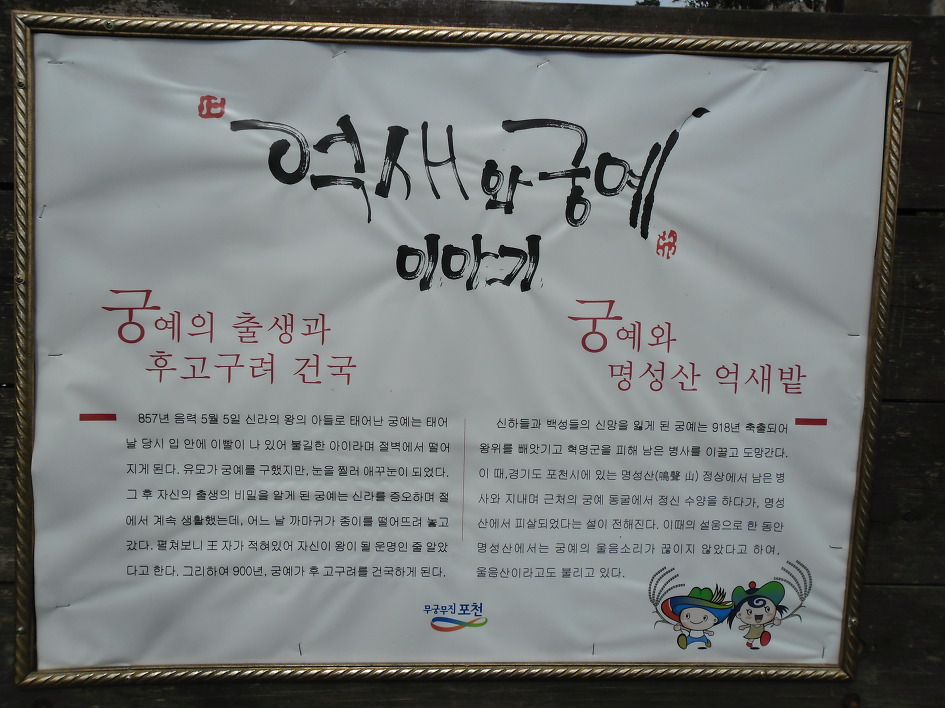 억새와궁예
이야기
궁예의 출생과
후고구려 건국
857년 음력 5월 5일 신라의 왕의 아들로 태어난 궁예는 태어
날 당시 입 안에 이빨이 나 있어 불길한 아이라며 절벽에서 떨어
지게 된다. 유모가 궁예를 구했지만, 눈을 찔려 애꾸눈이 되었다.
그 후 자신의 출생의 비밀을 알게 된 궁예는 신라를 증오하며 절
에서 계속 생활했는데, 어느 날 까마귀가 종이를 떨어뜨려 놓고
갔다. 펼쳐보니 王 자가 적혀있어 자신이 왕이 될 운명인 줄 알았
다고 한다. 그리하여 900년, 궁예가 후 고구려를 건국하게 된다.
궁예와
명성산 억새밭
신하들과 백성들의 신망을 잃게 된 궁예는 918년 축출되어
왕위를 빼앗기고 혁명군을 피해 남은 병사를 이끌고 도망간다.
이 때,경기도 포천시에 있는 명성산(鳴聲 山) 정상에서 남은 병
사와 지내며 근처의 궁예 동굴에서 정신 수양을 하다가, 명성
산에서 피살되었다는 설이 전해진다. 이때의 설움으로 한 동안
명성산에서는 궁예의 울음소리가 끊이지 않았다고 하여,
울음산이라고도 불리고 있다.
무궁무진 포천